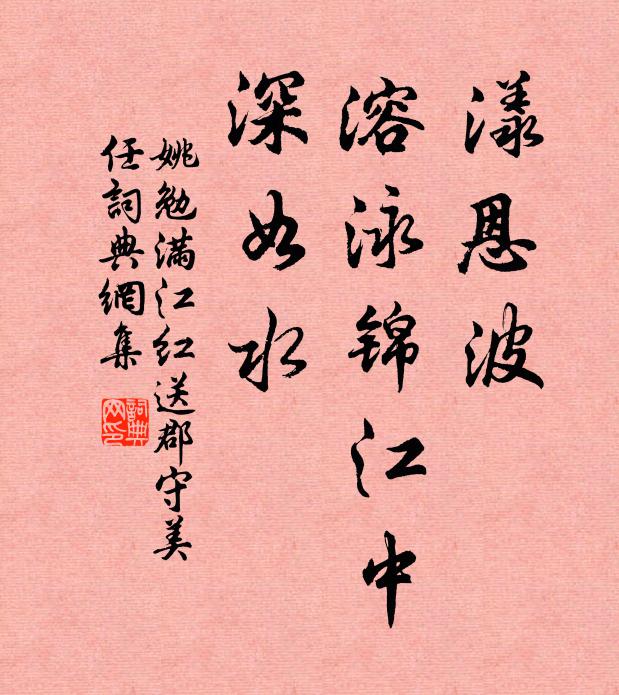 漾恩波
溶泳錦江中
深如水
姚勉滿江紅送郡守美
任詞典網集
詞典
网印